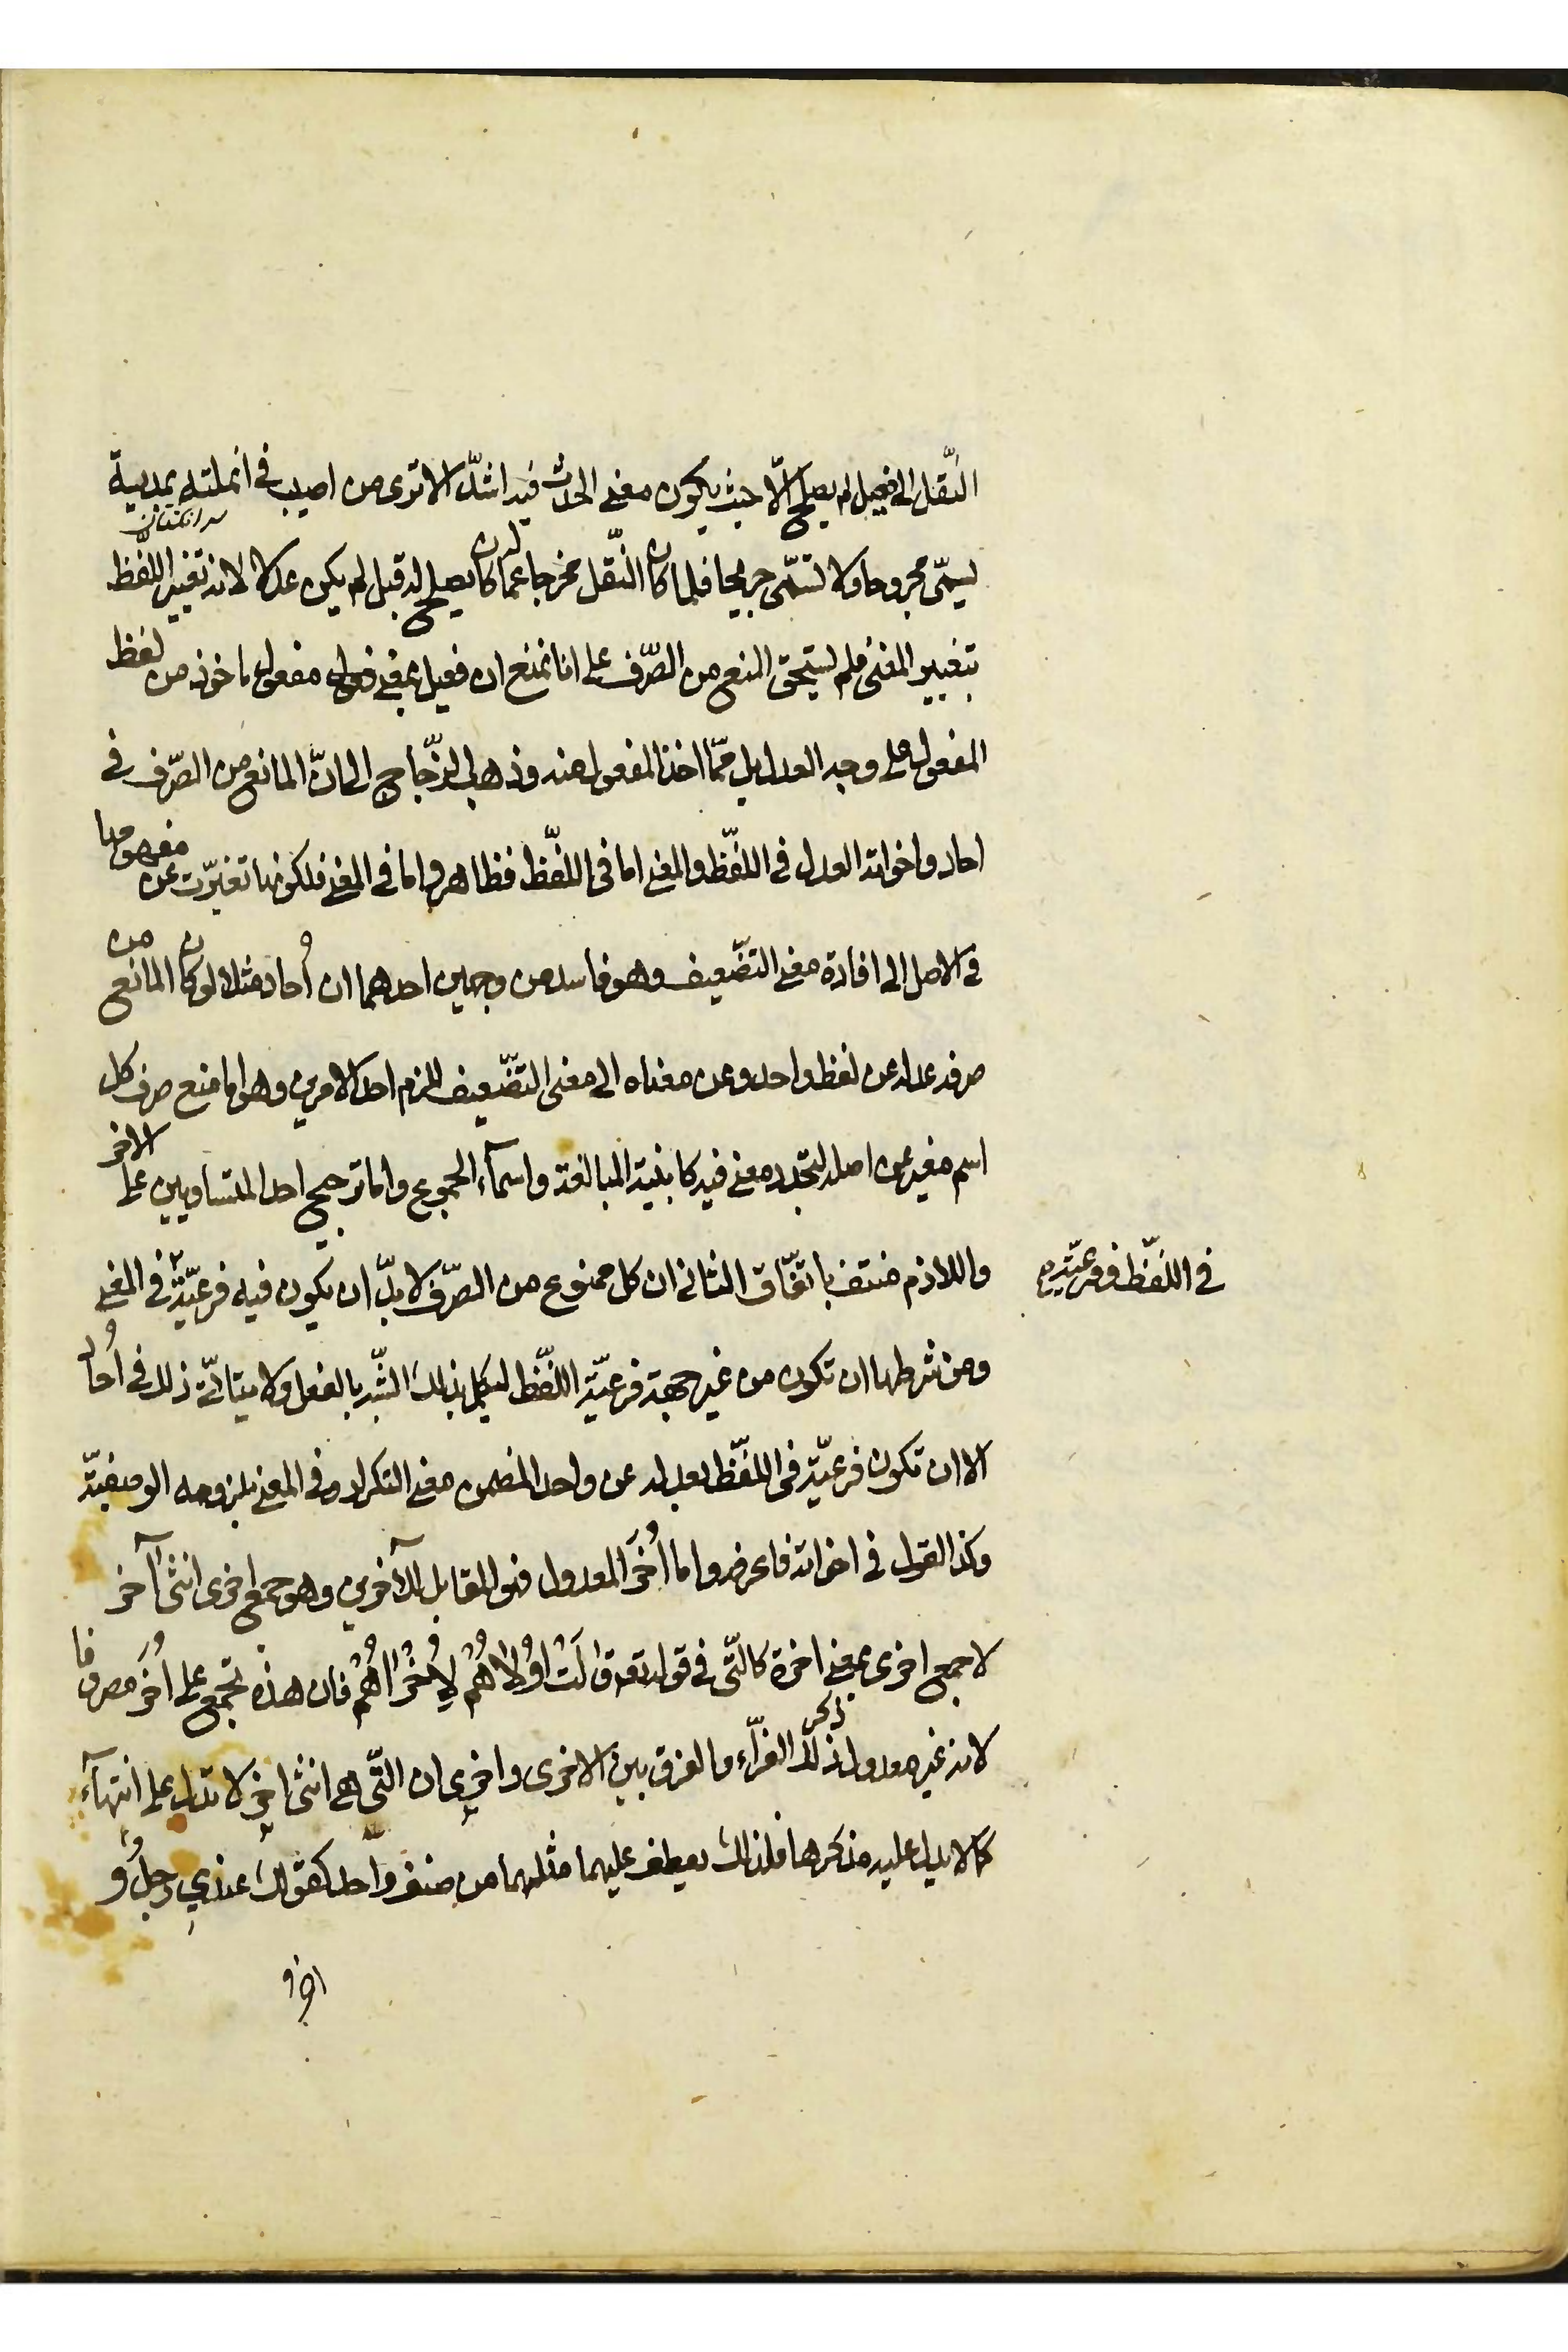 النّقل الى فعيل لم يصلح الّا حيث يكون معنى الحدث فيه اشدّ الا ترى من اصيب في انملته بمدية
سر انكشتان
يسمّى مجروحا ولا يسمّى جريحا فلما كان النّقل مخرجا عما كان يصلح له قبل لم يكن عدلا لانه تغيير اللّفظ
بتغيير المعنى فلم يستحق المنع من الصّرف على انا نمنع ان فعيل بمعنى مفعول ماخوذ من لفظ
المفعول على وجه العدل بل ممّا اخذ المفعول منه وذهب الزّجاج الى انّ المانع من الصّرف في
احاد واخواته العدل في اللّفظ والمعنى اما في اللّفظ فظاهر واما في المعنى فلكونها تغيّرت عن مفهومها
في الاصل الى افادة معنى التضّعيف وهو فاسد من وجهين احدهما ان أُحاد مثلا لو كان المانع من
صرفه عدله عن لفظ واحد وعن معناه الى معنى التضّعيف للزم احد الامرين وهو اما منع صرف كل
اسم مغير عن اصله لتجدد معنى فيه كابنية المبالغة واسمآء الجموع واما ترجيح احد المتساويين على الاخر
واللازم منتف باتفّاق الثاني ان كل ممنوع من الصّرف لا بدّ ان يكون فيه فرعيّة في المعنى
في اللّفظ وفرعيّته
ومن شرطها ان تكون من غير جهة فرعيّة اللّفظ ليكمل بذلك الشّبه بالفعل ولا يتاتّى ذلك في أُحاد
الا ان تكون فرعيّته في اللّفظ بعدله عن واحد المضمن معنى التكرار وفي المعنى بلزومه الوصفيّة
وكذا القول في اخواته فاعرفه واما أُخَر المعدول فهو المقابل لآخرين وهو جمع اخرى انثى آخر
لا جمع اخرى بمعنى اخرة كالّتى في قوله تع قٰالَتْ اُولٰاهُمْ لِأُخْرٰاهُمْ فان هذه تجمع على أُخَر مصروفا
لانه غير معدول ذكر ذلك الفرّاء والفرق بين الاخرى واخرى ان الّتى هى انثى اخر لا تدل على انتهآء
كما لا يدل عليه مذكرها فلذلك يعطف عليهما مثلهما من صنف واحد كقولك عندي رجلٌ و
اخر و